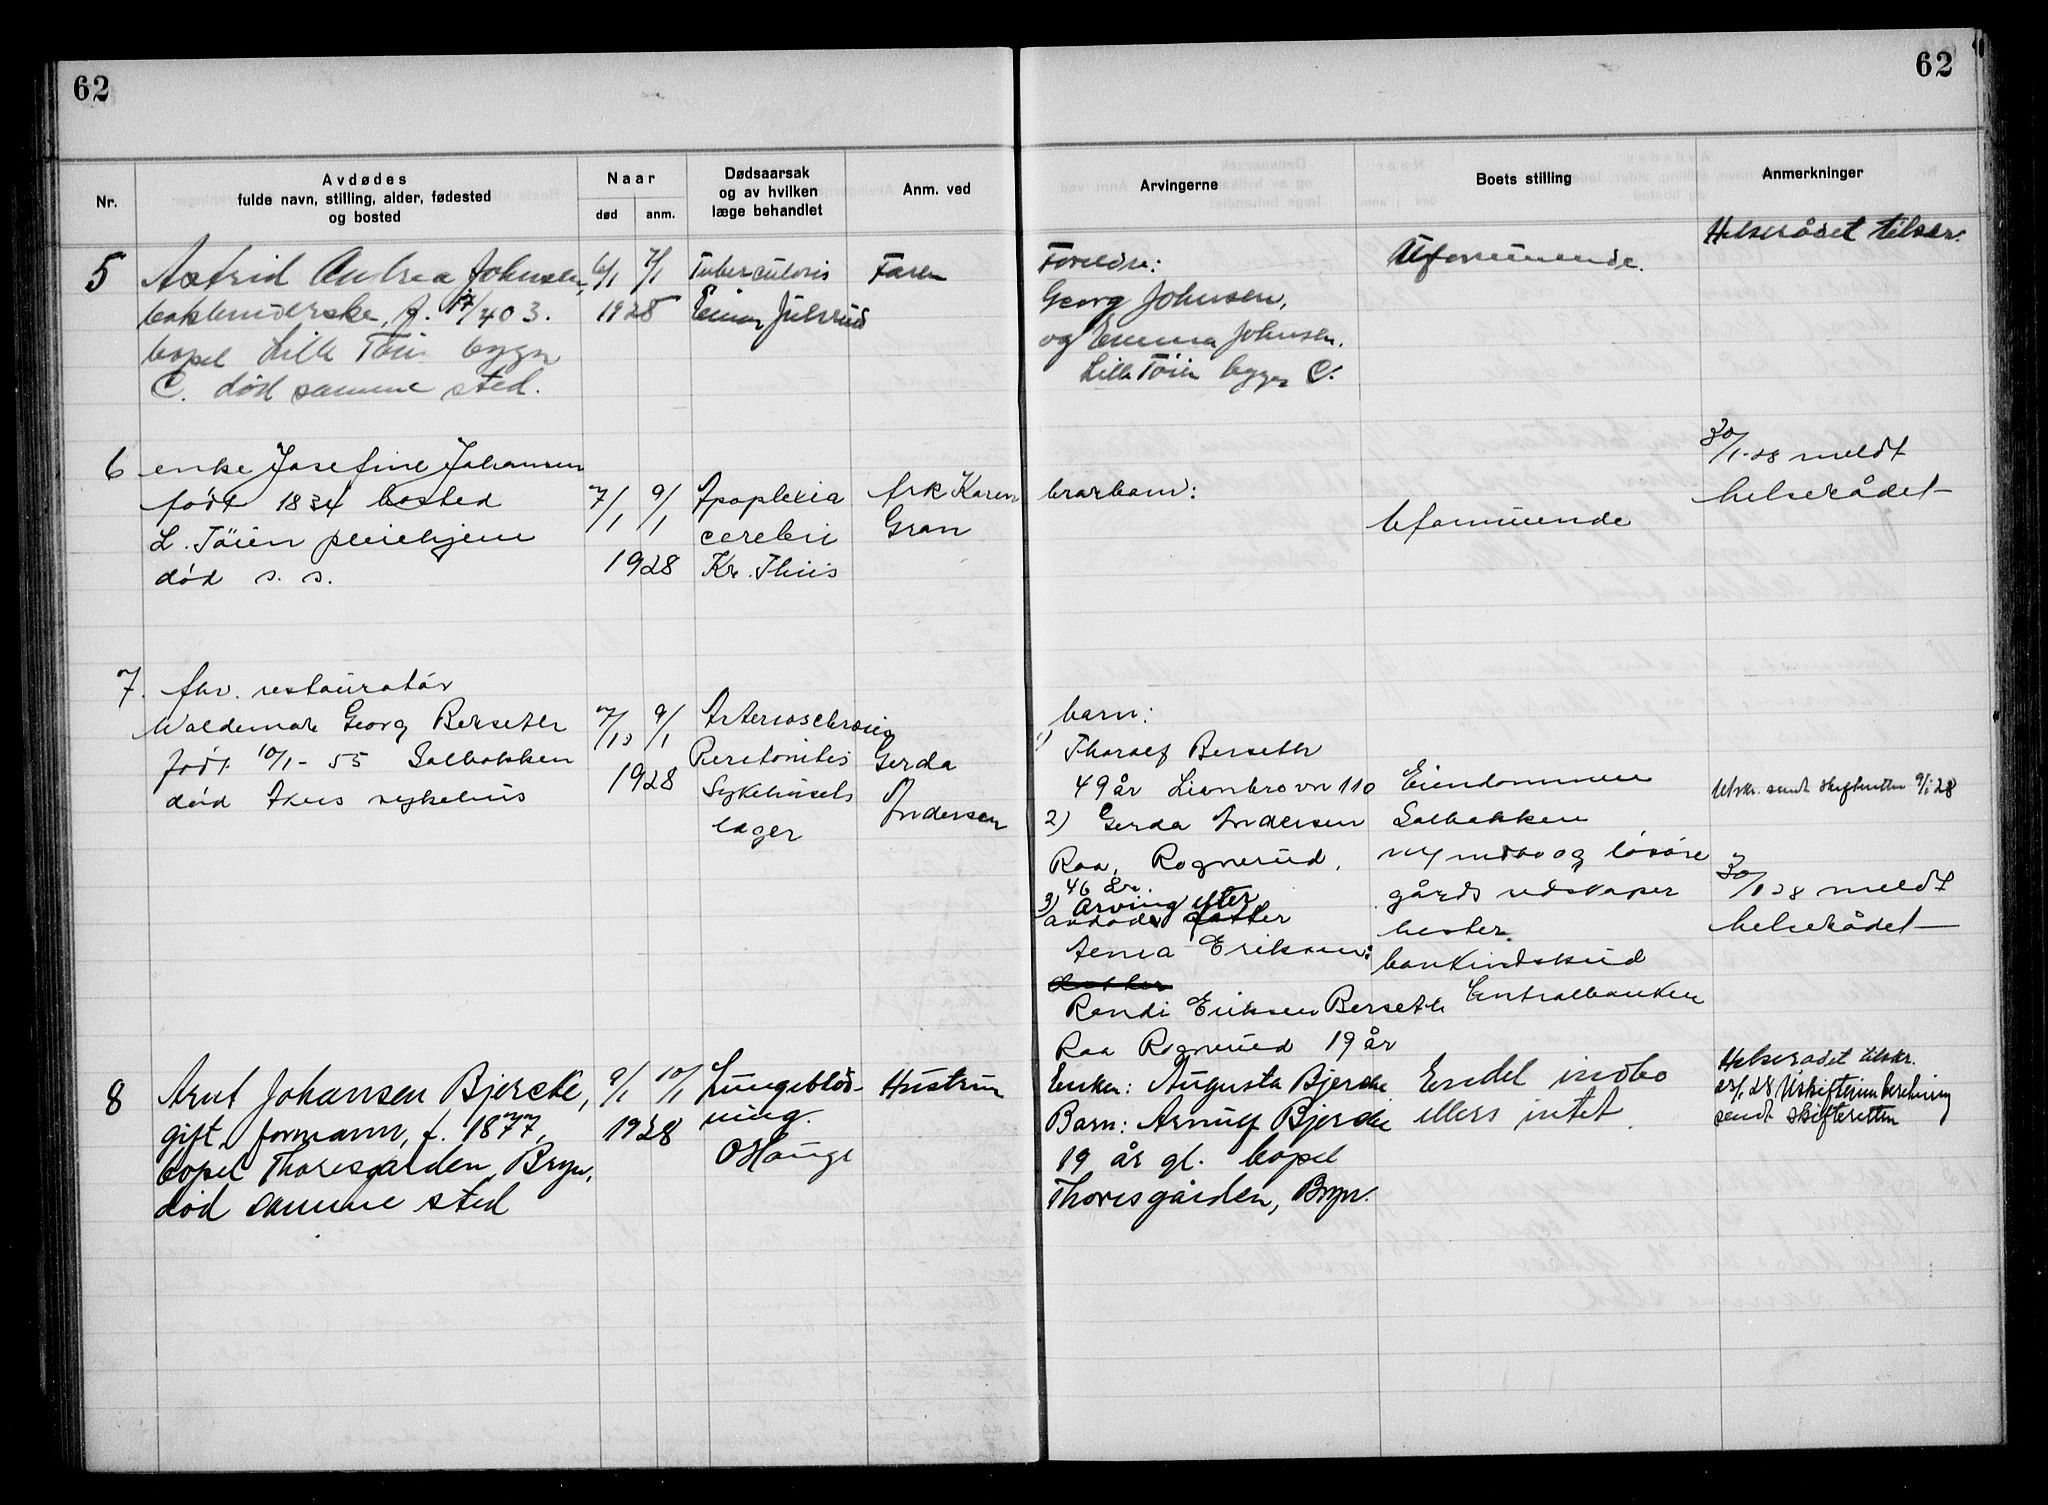 62
62
Nr.
Avdødes
fulde navn, stilling, alder, fødested
og bosted
Naar
død
anm.
Dødsaarsak
og av hvilken
læge behandlet
Anm. ved
Arvingerne
Boets stilling
Anmerkninger
5
Astrid Andrea Johnsen,
f. 17/4 03.
bopel Lille Tøien bygn
C. død samme sted.
6/1 7/1
1928
Tuberculosis
Einar Julsrud
Faren
Foreldre:
Georg Johnsen,
og Emma Johnsen.
Lille Tøien bygn C.
Uformuende.
Helserådet tilskr.
6
enke Josefine Johansen
født 1834 bosted
L. Tøien pleiehjem
død s. s.
7/1 9/1
1928
Apoplexia
cerebri
Kr. Thiis
frk Karen
Gran
brorbarn:
Uformuende
30/1-28 meldt
helserådet
7.
fhv. restauratør
Waldemar Georg Berseth
født 10/1-55 Solbakken
død Akers sykehus
7/1 9/1
1928
Arteriosclerosis
Peritonitis
Sykehusets
læger
Gerda
Andersen
barn:
1) Thoralf Berseth
49 år Ljanbrovn 110
2) Gerda Andersen
Roa, Rognerud.
46 år.
3) Arving efter
avdøde datter
Anna Eriksen:
Randi Eriksen Berseth
Roa Rognerud 19 år
Eiendommen
Solbakken
m/ indbo og løsøre
gårds redskaper
hester
bankindskud
Centralbanken
Utskr. sendt skifteretten 9/1 28
30/1 28 meldt
helserådet
8
Arnt Johansen Bjercke,
gift, formann, f. 1877,
bopel Thoresgarden, Bryn,
død samme sted
9/1 10/1
1928
Lungeblød-
ning.
O Hauge
Hustrun
Enken: Augusta Bjercke
Barn: Arnulf Bjercke
19 år gl. bopel
Thoresgården, Bryn.
Endel indbo
ellers intet.
Helseradet tilskr.
sendt skifteretten